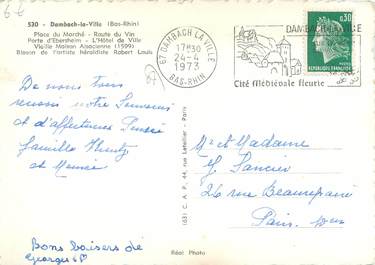 530 - Dambach-la-Ville (Bas-Rhin)
Place du Marché - Route du Vin
Porte d'Ebersheim - L'Hôtel de Ville
Vieille Maison Alsacienne (1599)
Blason de l'artiste héraldiste Robert Louis
67 DAMBACH LA VILLE
17H30
24-4
1973
BAS-RHIN
DAMBACH-LA-VILLE
Cité Médiévale fleurie
0,30
REPUBLIQUE FRANÇAISE
De nous tous
notre
et d'affectueuses Pensée
famille
et
Bons baisers de
Georges
(63) C. A. P. 44, rue Letellier - Paris
Réal Photo
Mr et Madame
26 rue Beaurepaire
Paris